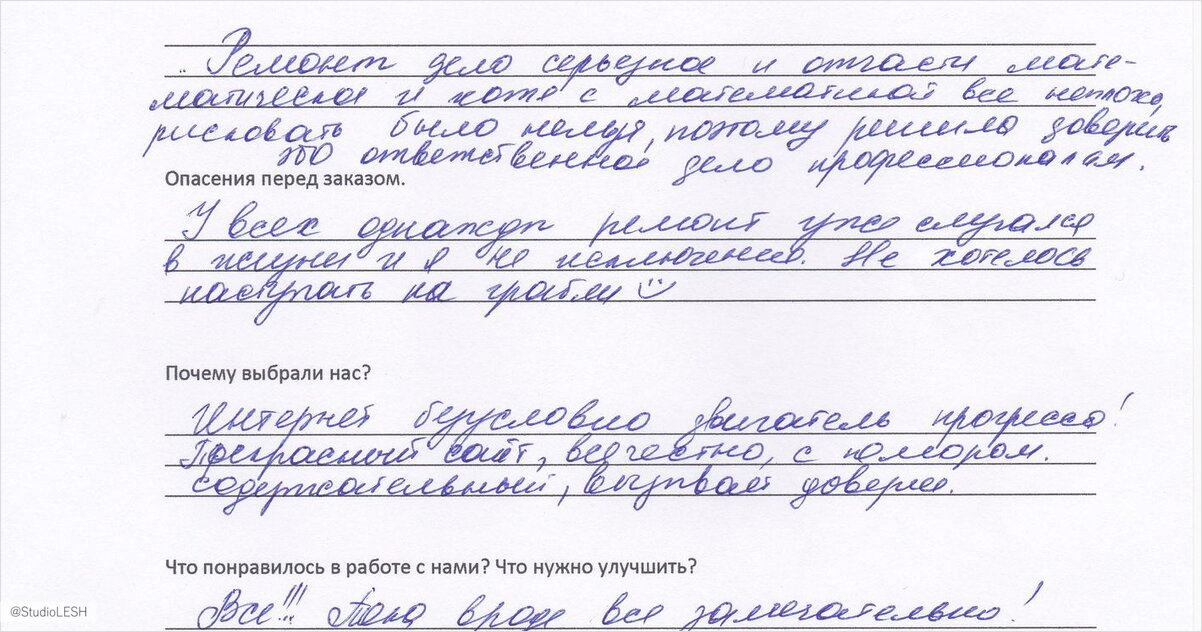 Ремонт дело серьезное и отчасти мате-
матическое и хотя с математикой все неплохо,
рисковать было нельзя, поэтому решила доверить
это ответственное дело профессионалам.
Опасения перед заказом.
У всех однажды ремонт уже случался
в жизни и я не исключение. Не хотелось
наступать на грабли
Почему выбрали нас?
Интернет безусловно двигатель прогресса!
Прекрасный сайт, все честно, с юмором.
содержательный, вызывает доверие.
Что понравилось в работе с нами? Что нужно улучшить?
Все!!! Пока вроде все замечательно!
@StudioLESH